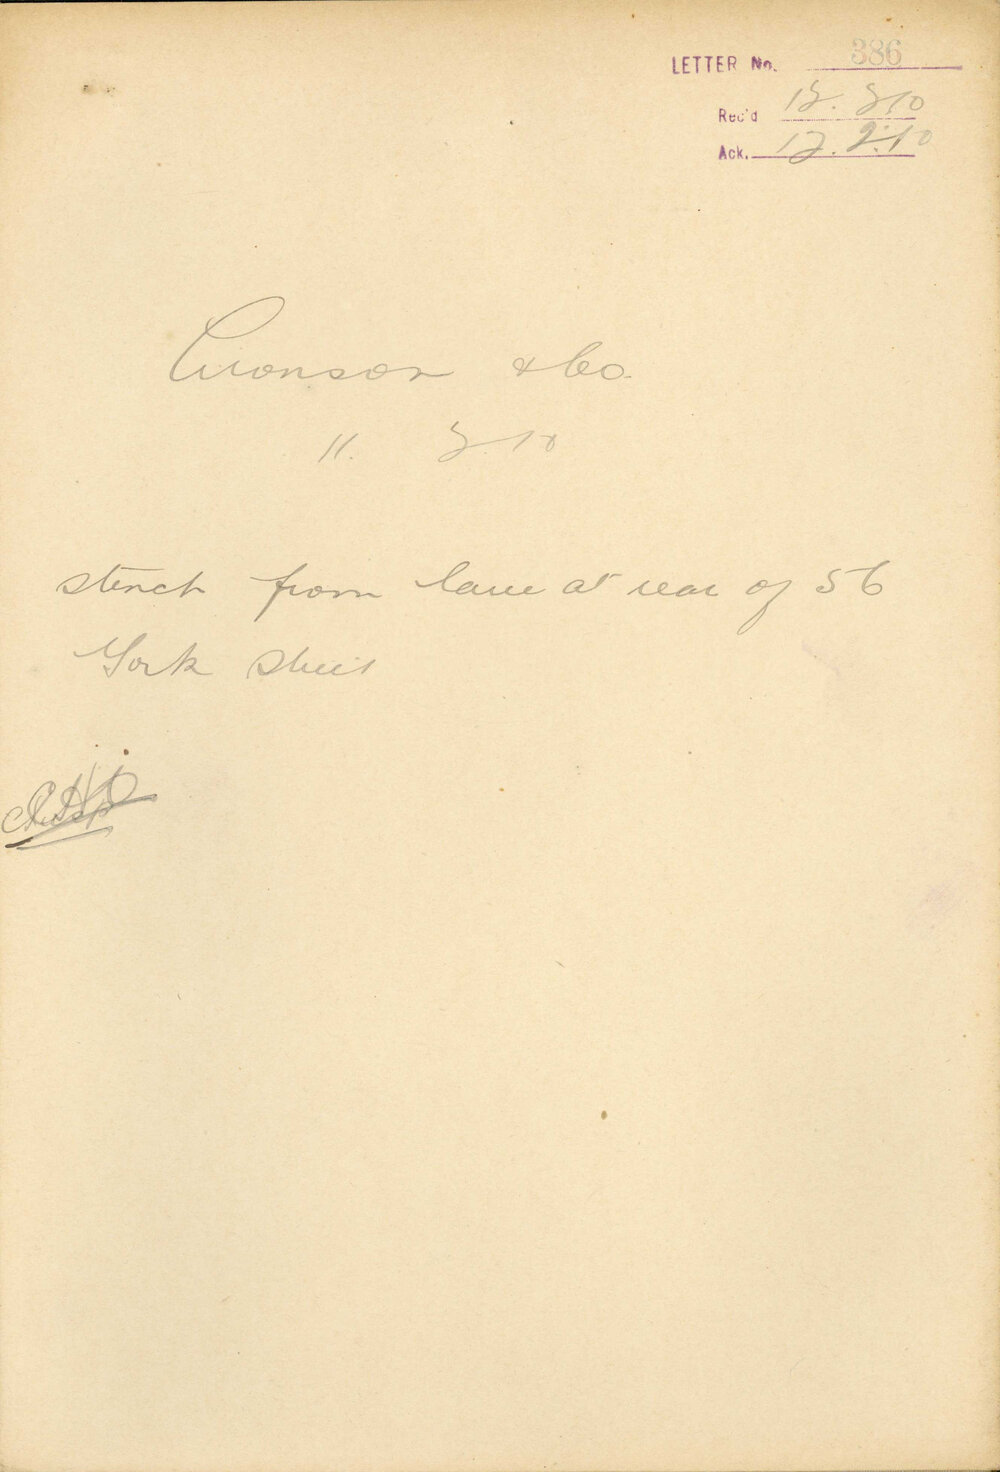 LETTER No. 386
Rec'd 12. 2 10
Ack. 12. 2. 10
& Co.
11. 2 10
stench from lane at rear of 56
York Street